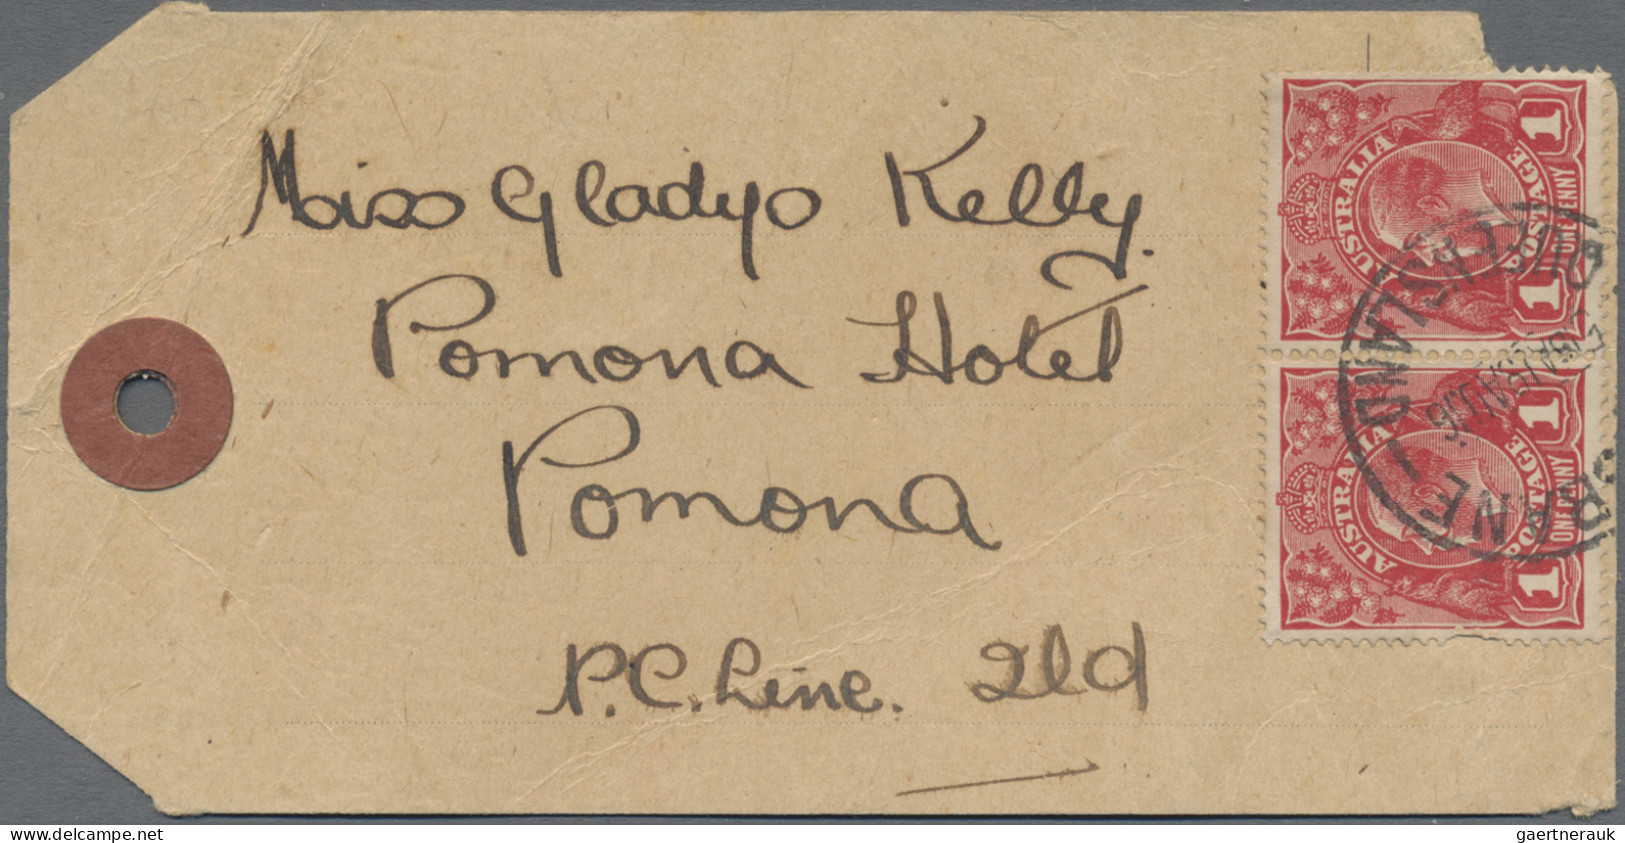 Miss Gladys Kelly.
Pomona Hotel
Pomona
N.C. Line. Qld
AUSTRALIA
POSTAGE
1 1
ONE PENNY
AUSTRALIA
POSTAGE
1 1
ONE PENNY
BRISBANE
delcampe.net
gaertnerauk